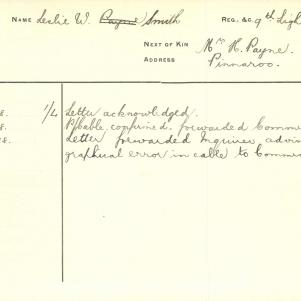 NAME Leslie W. Payne Smith REG. &C. 9th Ligh
NEXT OF KIN Mrs H. Payne.
ADDRESS Pinnaroo.
8. 1/4 Letter acknowledged.
8. P/Cable, confirmed, forwarded Commi
8. Letter forwarded Inquirer advi
graphical error in cable to Commi